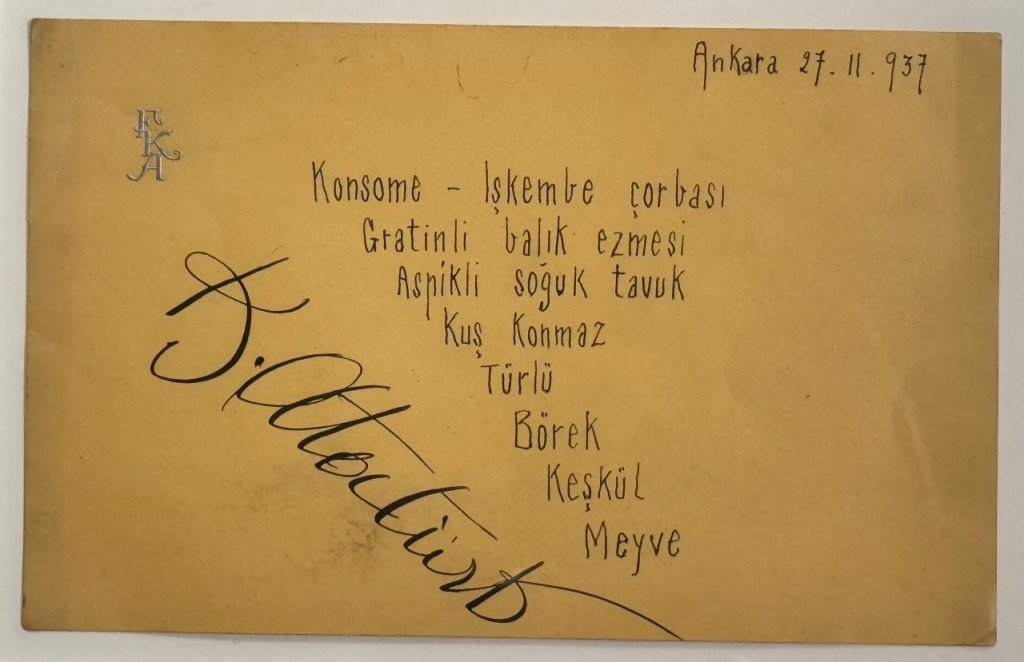 Ankara 27.11.937
FKA
Konsome - Işkembe çorbası
Gratinli balık ezmesi
Aspikli soğuk tavuk
Kuş Konmaz
Türlü
Börek
Keşkül
Meyve
K. Atatürk